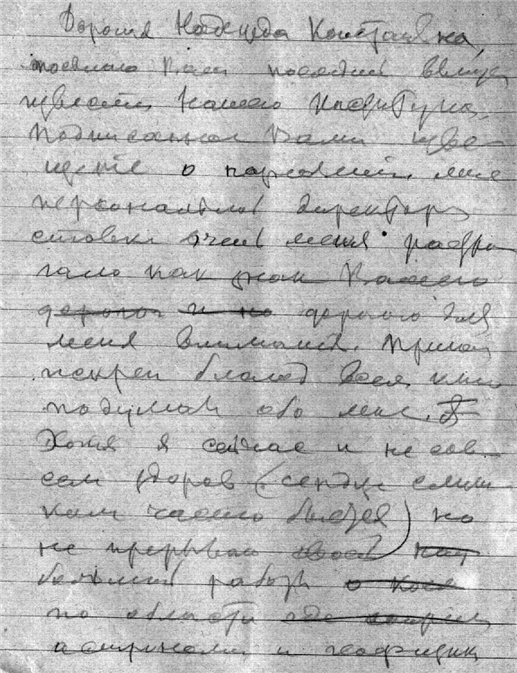 Дорогая Надежда Константиновна,
посылаю Вам последний выпуск
известий нашего Института.
Подписанное Вами изве-
щение о назначении мне
персональной директорс
ставки очень меня растро
гало как знак Вашего
дорогого и но дорогого для
меня внимания. Прошу
искрен благод всех, кто
подумал обо мне.
Хотя я сейчас и не сов-
сем здоров (сердце слиш-
ком часто бьется) но
не прерываю своей
большой работы о
по области где
астрономии и геофизики